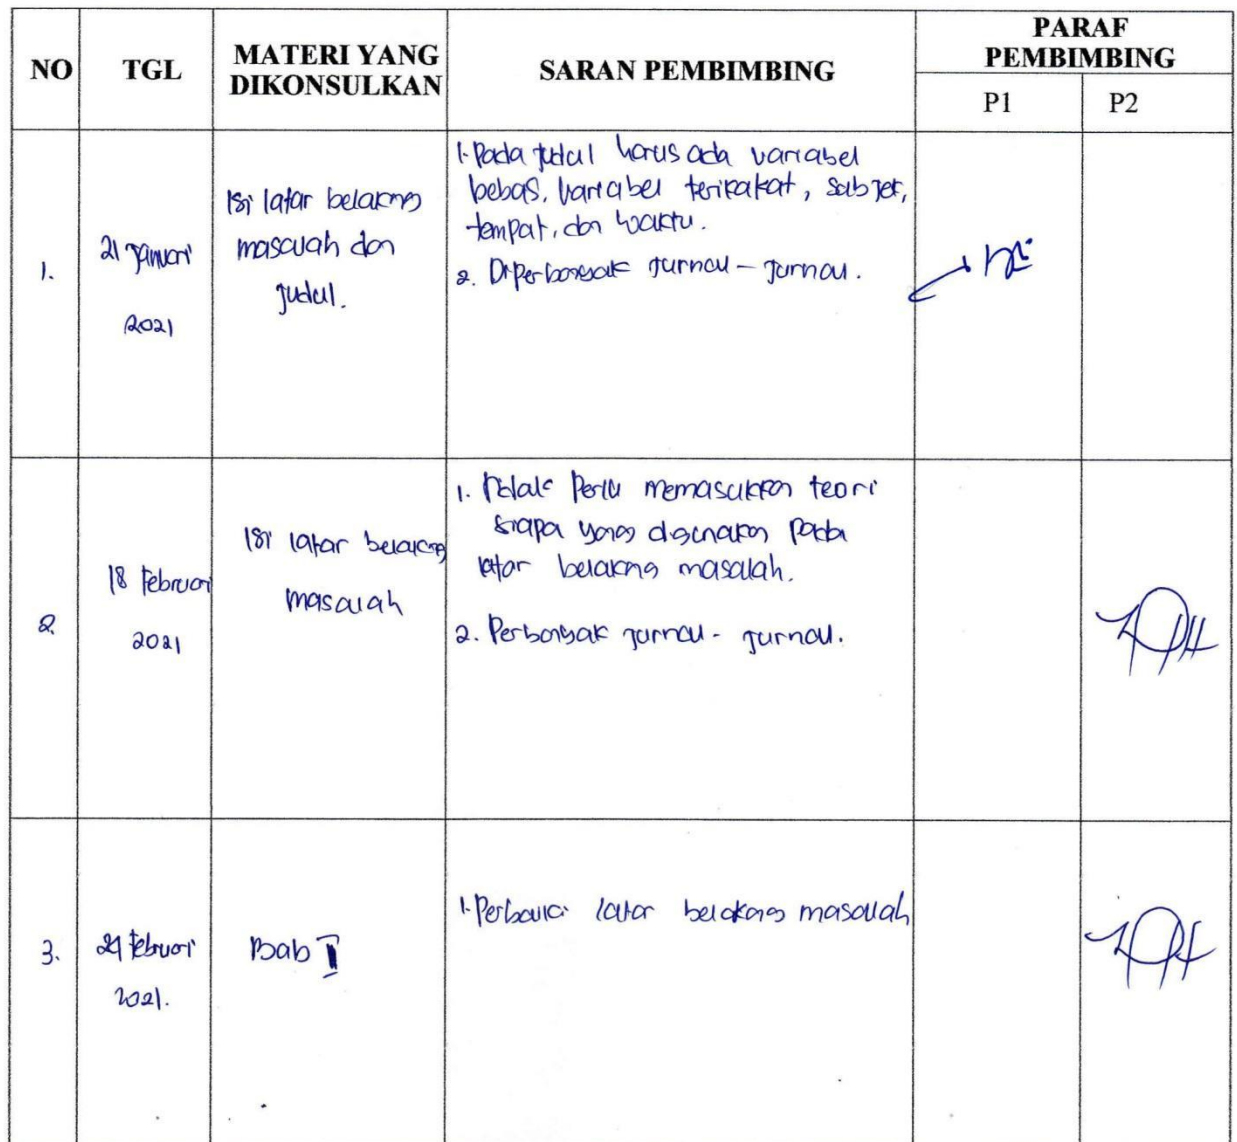 NO TGL MATERI YANG DIKONSULKAN SARAN PEMBIMBING PARAF PEMBIMBING
P1 P2
1. 21 Januari 2021
Isi latar belakang
masalah dan
Judul.
1. Pada judul harus ada variabel
bebas, variabel terikakat, subjek,
tempat, dan waktu.
2. Diperbanyak Jurnal - Jurnal.
2. 18 Februari 2021
Isi latar belakang
masalah
1. Tidak Perlu memasukkan teori
siapa yang digunakan pada
latar belakang masalah.
2. Perbanyak Jurnal - Jurnal.
3. Februari 2021.
Bab I
1. Perbaiki latar belakang masalah